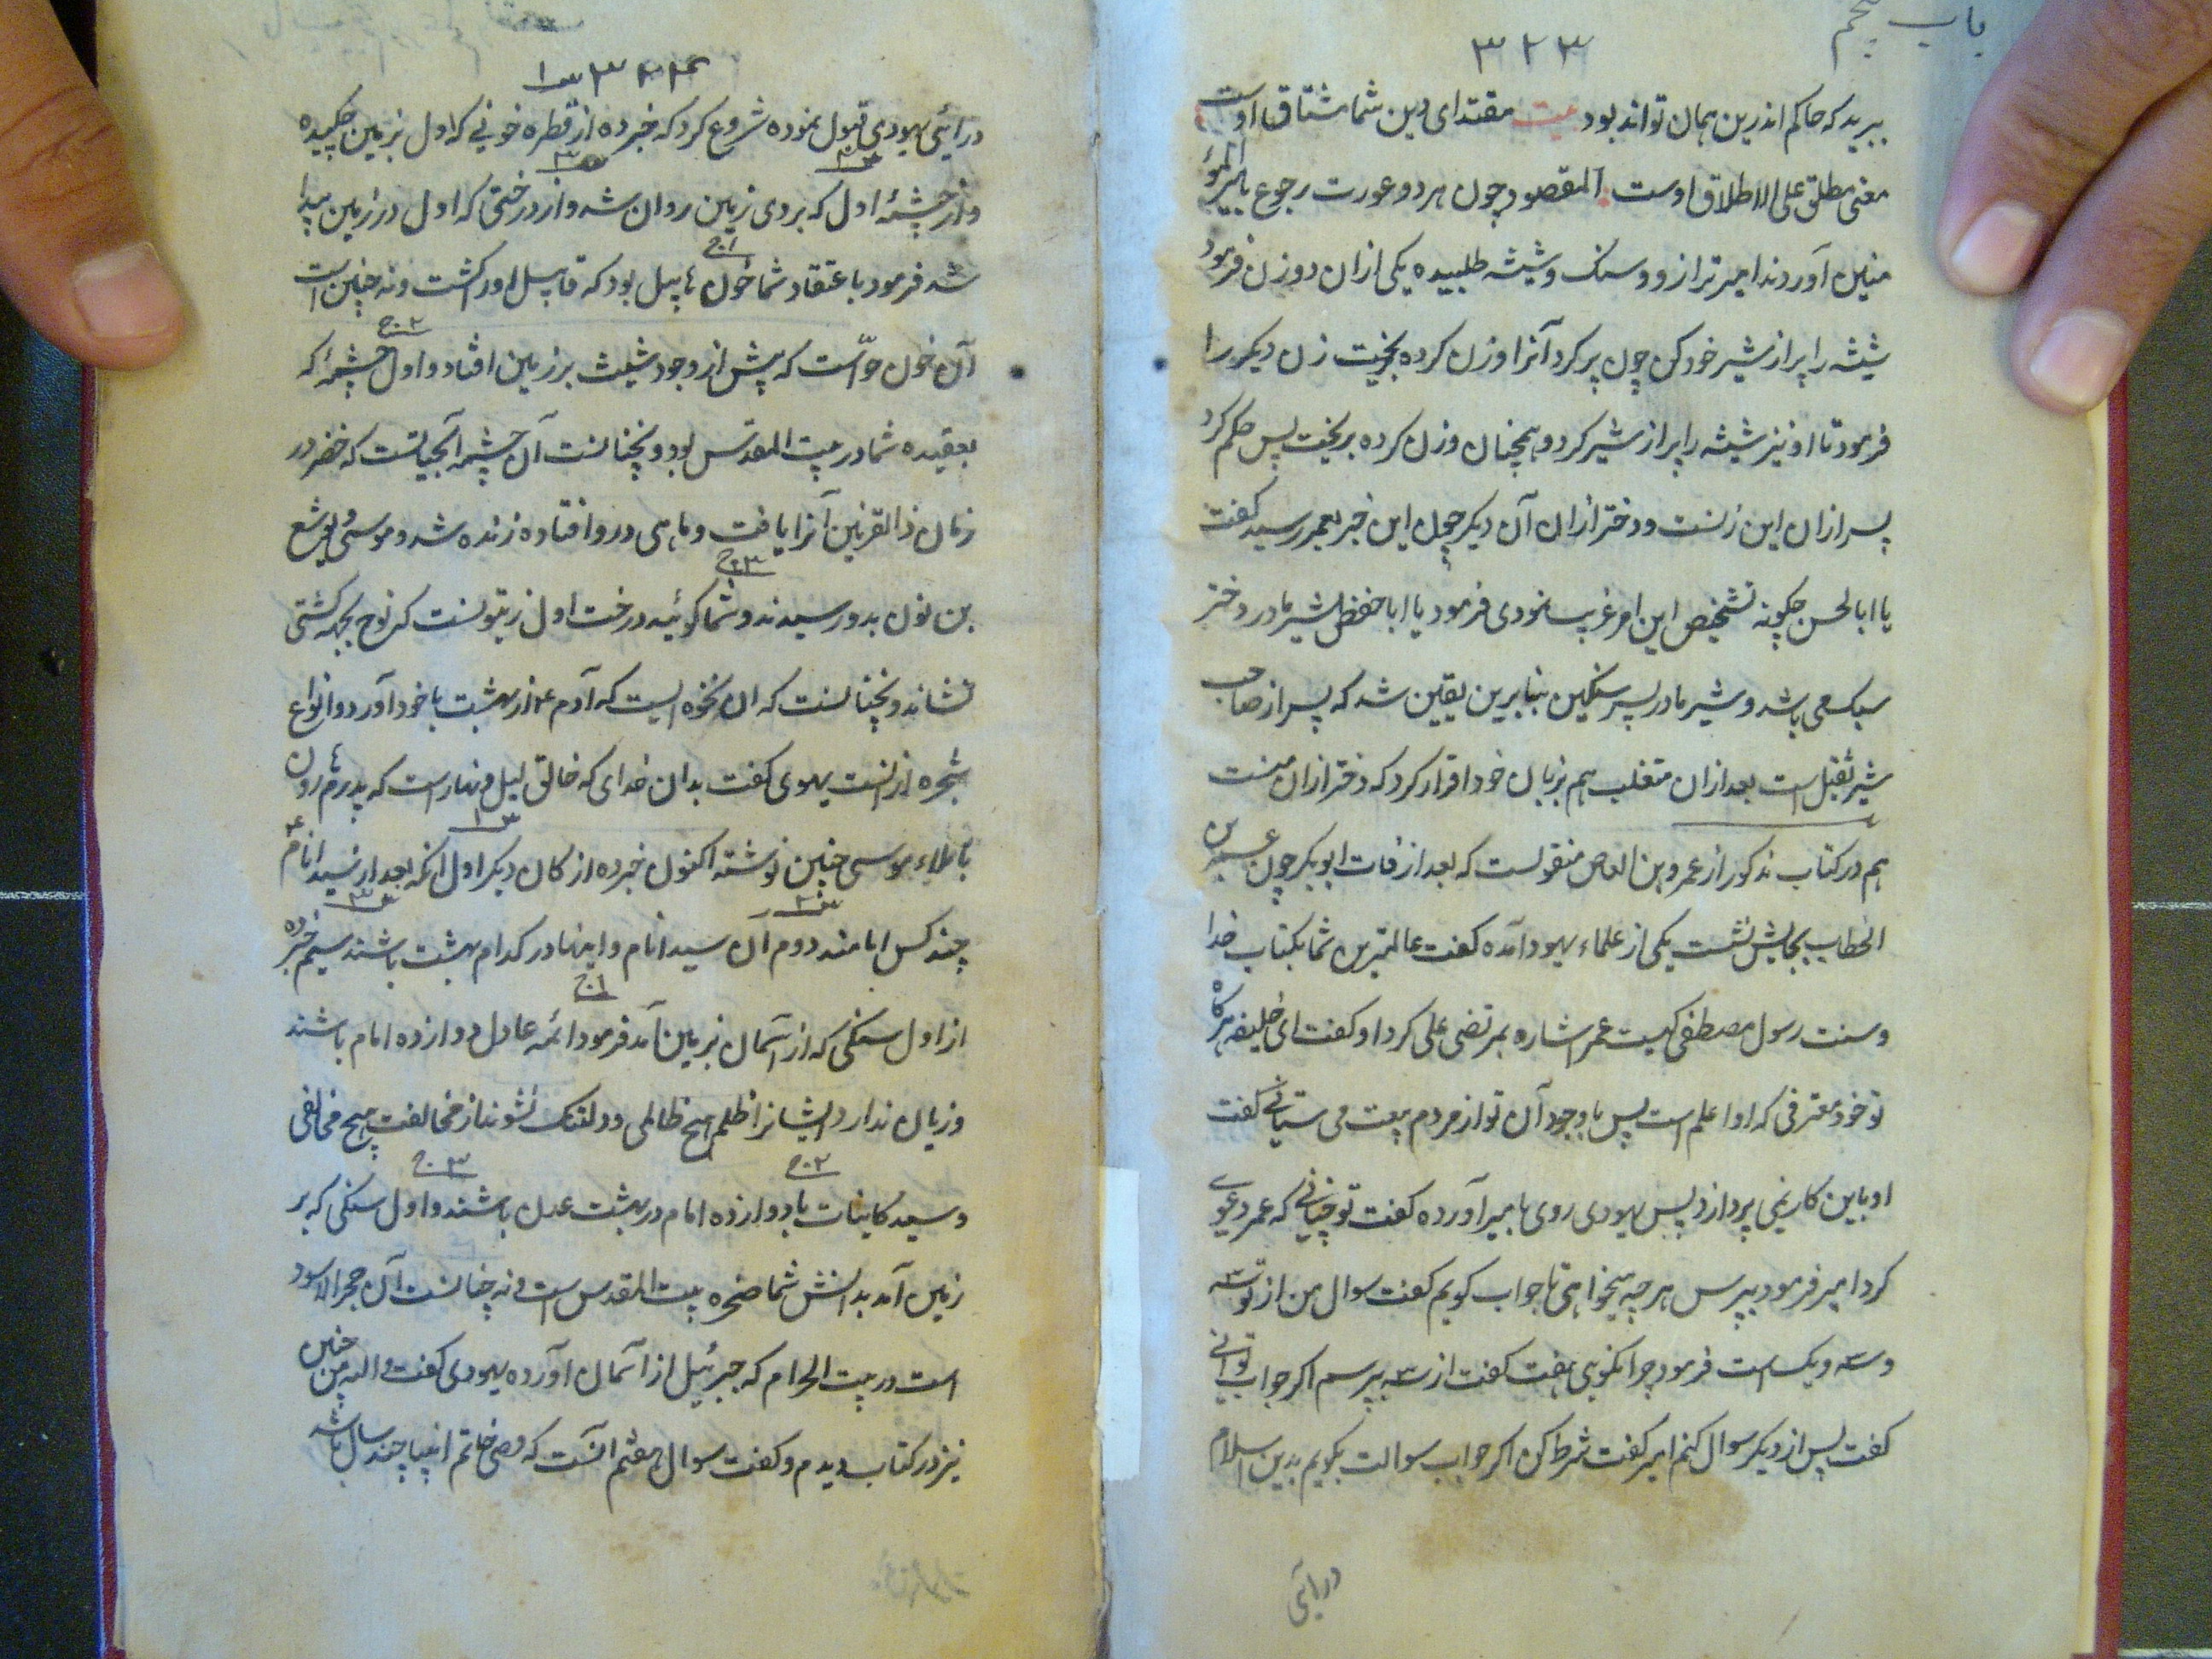 باب پنجم
۳۲۳
ببرید که حاکم اندرین همان تواند بود بیت مقتدای دین شما مشتاق اوست
مفتی مطلق علی الاطلاق اوست القصود چون هر دو عورت رجوع بامیرالمؤ
منین آوردند امیر ترازو و سنک و شیشه طلبیده یکی ازان دو زن فرمود
شیشه را پر از شیر خود کن چون پر کرد آنرا وزن کرده بریخت زن دیکر را
فرمود تا او نیز شیشه را پر از شیر کرد و همچنان وزن کرده بریخت پس حکم کرد
پسر ازان این زنست و دختر ازان آن دیکر چون این خبر بعمر رسید کفت
یا ابا لحسن چکونه تشخیص این امر غریب نمودی فرمود یا ابا حفص شیر مادر دختر
سبک می باشد و شیر مادر پسر سنکین بنابرین یقین شد که پسر از صاحب
شیر ثقیل است بعد ازان متغلب هم بزبان خود اقرار کرد که دختر ازان منست
هم در کتاب مذکور از عمرو بن العاص منقولست که بعد از فات ابوبکر چون عمر بن
الخطاب بجایش نشست یکی از علماء یهود آمده کفت عالمترین شما بکتاب خدا
و سنت رسول مصطفی کیست عمر اشاره بمرتضی علی کرد او کفت ای خلیفه هرکاه
تو خود معترفی که او اعلم است پس باوجود آن تو از مردم بیعت می ستانی کفت
او باین کار نمی پردازد پس یهودی روی بامیر آورده کفت تو چنانی که عمر دعوی
کرد امیر فرمود بپرس هر چه میخواهی تا جواب کویم کفت سوال من از تو سه
و سه و یک است فرمود چرا نکوی هفت کفت از سه بپرسم اکر جواب توانی
کفت پس از دیکر سوال کنم امیر کفت شرط کن اکر جواب سوالت بکویم بدین اسلام
درآئی
۳۲۴
س۱
درآئی یهودی قبول نموده شروع کرد که خبر ده از قطره خونی که اول بزمین چکیده
س۲ س۳
و از چشمهٔ اول که بر روی زمین روان شد و از درختی که اول در زمین پیدا
ج۱
شد فرمود باعتقاد شما خون هابیل بود که قابیل اورا کشت و نه چنین است
ج۲
آن خون حوّاست که پیش از وجود شیث بر زمین افتاد و اول چشمهٔ که
بعقیده شما در بیت المقدس بود و نچنانست آن چشمه آبحیاتست که خضر در
زمان ذالقرنین آنرا یافت و ماهی درو افتاده زنده شد و موسی و یوشع
ج۳
بن نون بدو رسیدند و شما کوئید درخت اول زیتونست که نوح بجهه کشتی
نشاند و نچنانست که ان نخوه ایست که آدم ع از بهشت با خود آورد و انواع
شجره ازانست یهودی کفت بدان خدای که خالق لیل و نهار است که پدرم هارون
س۱
باملاء موسی چنین نوشته اکنون خبر ده از کان دیکر اول انکه بعد از سید انام ع
س۲ س۳
چند کس امامند دوم آن سید انام و اینها در کدام بهشت باشند سیم خبر ده
ج۱
از اول سنکی که از آسمان بزمین آمد فرمود ائمه عادل دوازده امام باشند
و زیان ندارد ایشانرا ظلم هیچ ظالمی و دلتنک نشوند از مخالفت هیچ مخالفی
ج۲ ج۳
و سید کاینات با دوازده امام در بهشت عدن باشند و اول سنکی که بر
زمین آمد بدانش شما صخره بیت المقدس است و نه چنانست آن حجر الاسود
است در بیت الحرام که جبرئیل از آسمان آورده یهودی کفت والله من چنین
نیز در کتاب دیدم و کفت سوال هفتم انست که وصی خاتم انبیا چند سال باشد